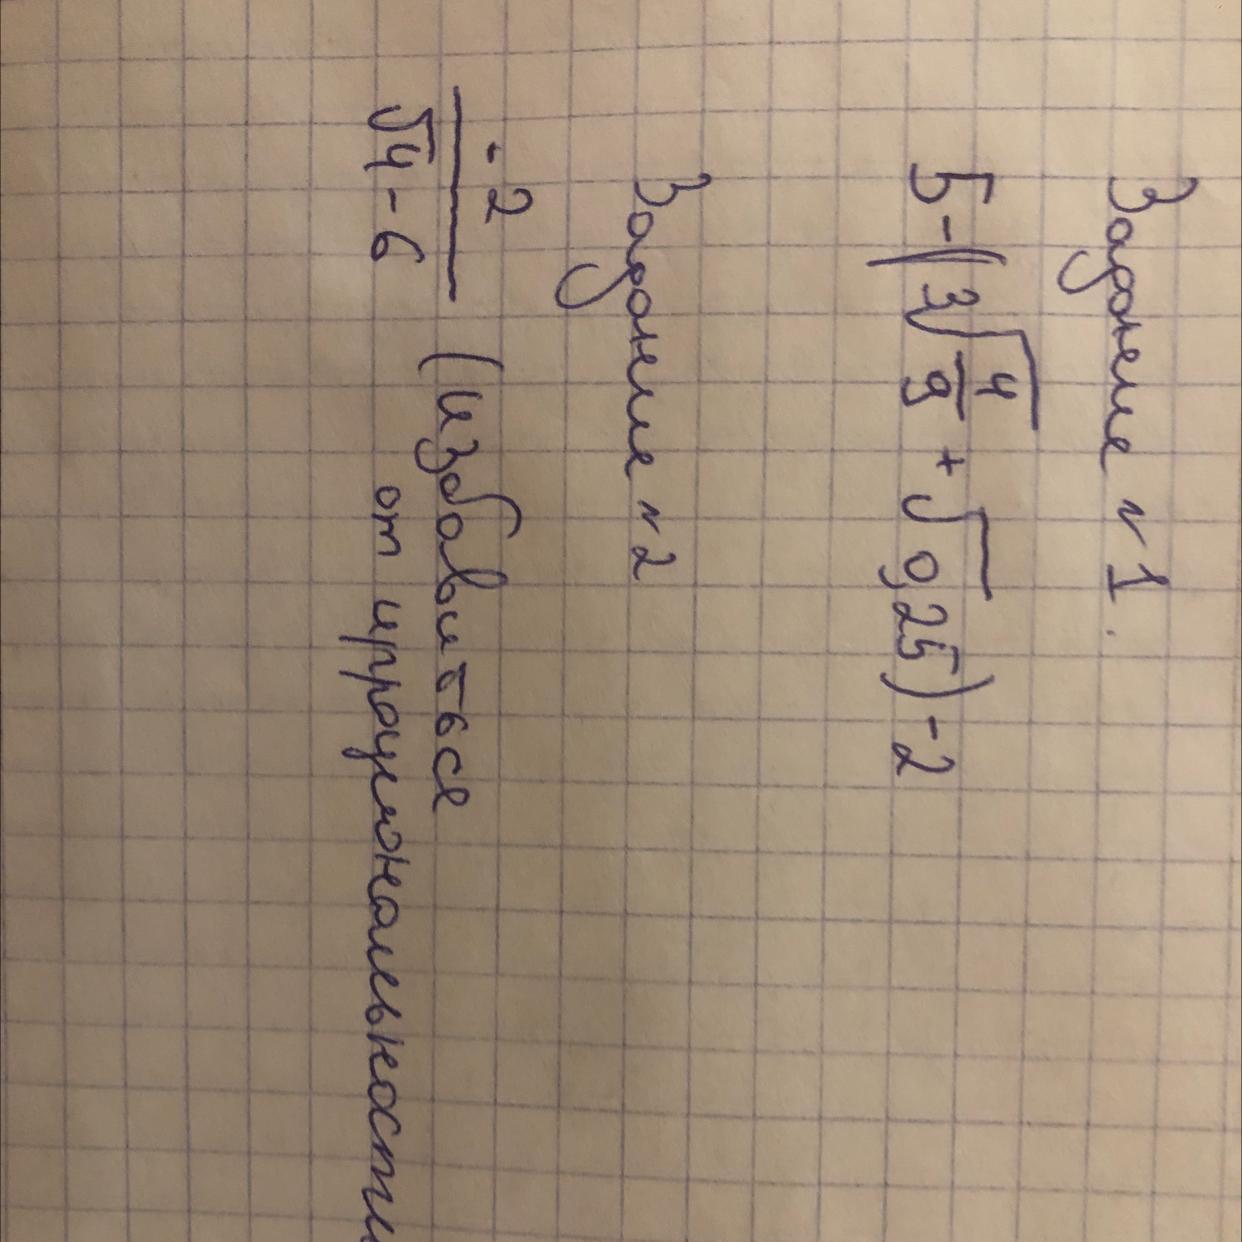 Задание №1.
5-(3√4/9 + √0,25)-2
Задание №2
-2/√4-6 (избавиться
от иррациональности